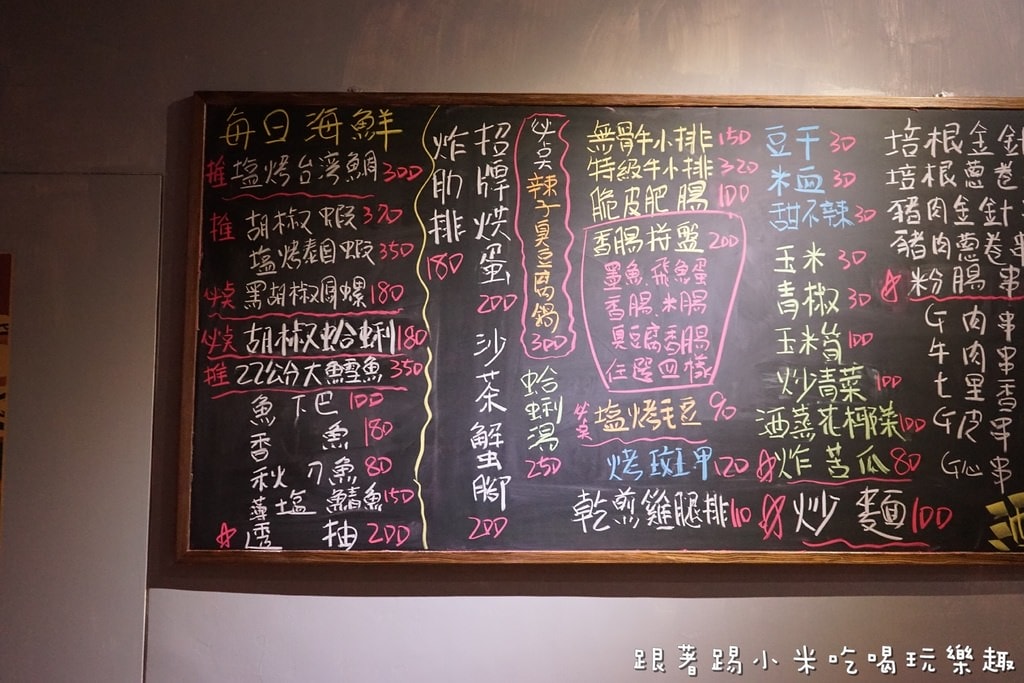 每日海鮮
推 塩烤台湾鯛 300
推 胡椒蝦 320
塩烤泰国蝦 350
必点 黑胡椒鳳螺 180
必点 胡椒蛤蜊 180
推 22公分大鱈魚 350
魚下巴 100
香魚 180
秋刀魚 80
薄塩鯖魚 150
透抽 200
炸肋排 180
招牌烘蛋 200
沙茶蟹腳 200
必点 辣子臭豆腐鍋 300
蛤蜊湯 250
無骨牛小排 150
特級牛小排 320
脆皮肥腸 100
香腸拼盤 200
墨魚.飛魚蛋
香腸.米腸
臭豆腐香腸
任選四樣
必点 塩烤毛豆 90
烤斑甲 120
乾煎雞腿排 110
豆干 30
米血 30
甜不辣 30
玉米 30
青椒 30
玉米筍 100
炒青菜 100
酒蒸花椰菜 100
炸苦瓜 80
炒麵 100
培根金針
培根蔥卷
豬肉金針
豬肉蔥卷串
粉腸串
牛肉串
七里香
跟著踢小米吃喝玩樂趣